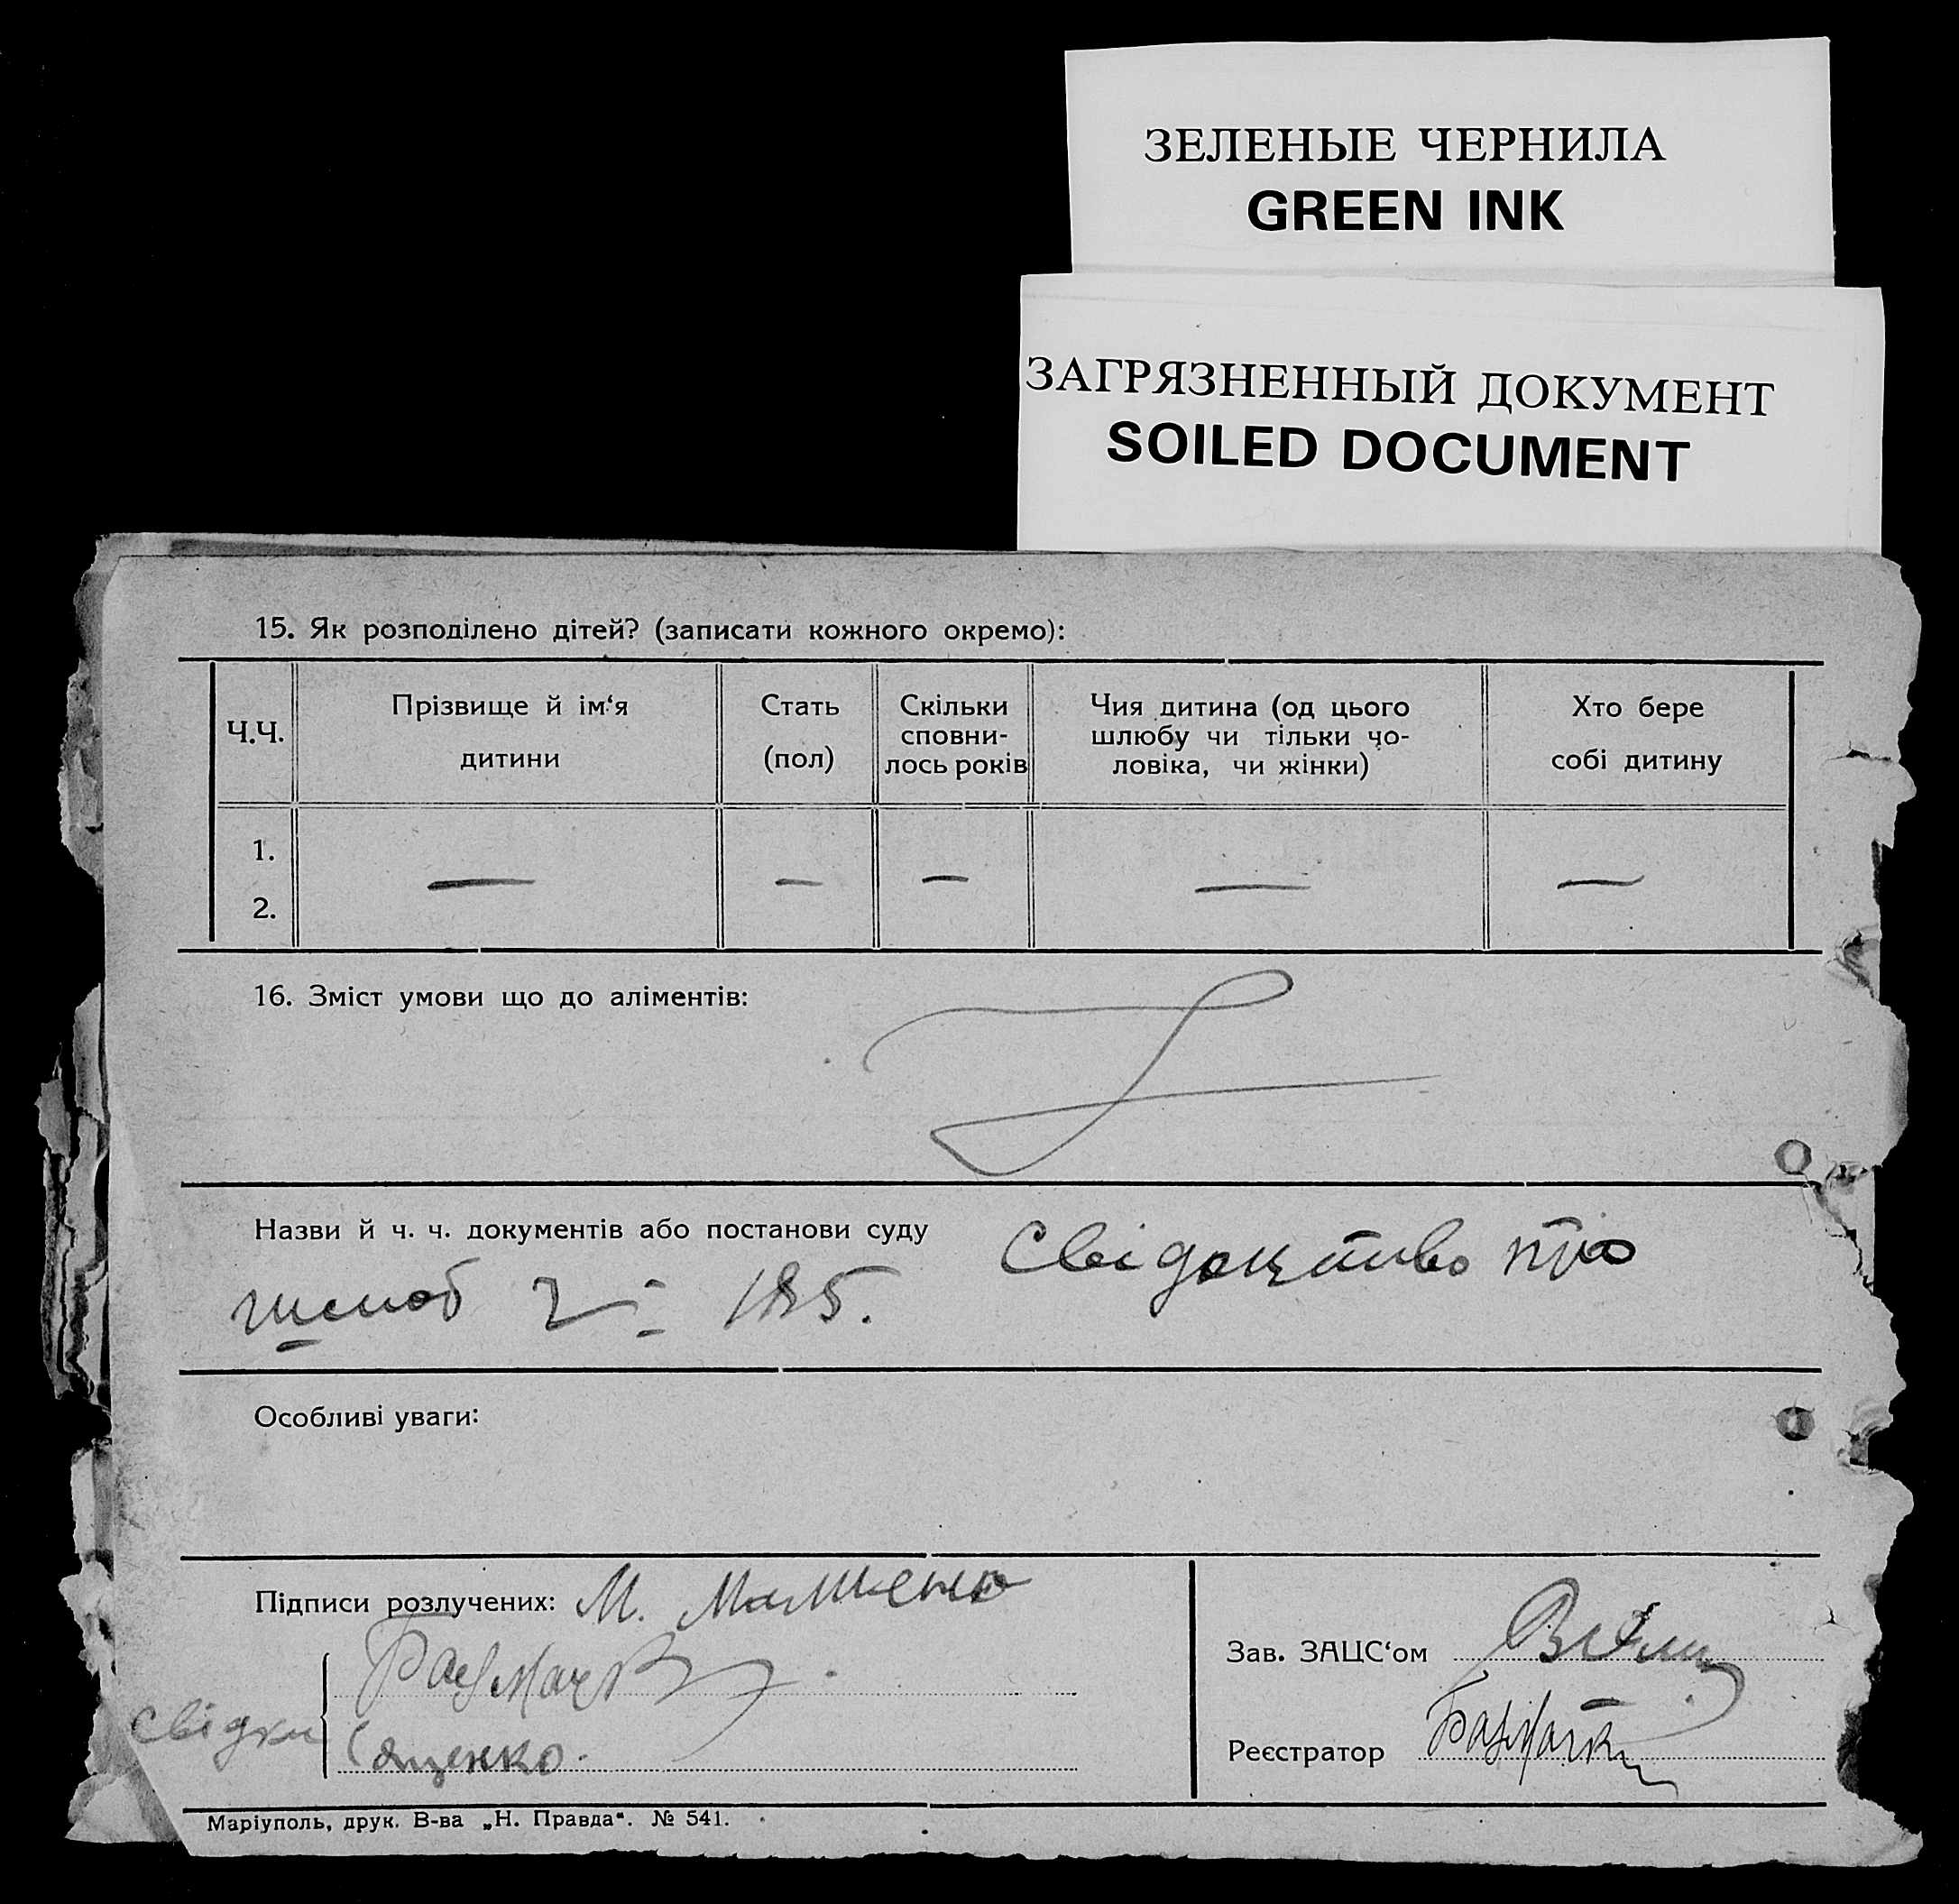 ЗЕЛЕНЫЕ ЧЕРНИЛА
GREEN INK
ЗАГРЯЗНЕННЫЙ ДОКУМЕНТ
SOILED DOCUMENT
15. Як розподілено дітей? (записати кожного окремо):
Ч.Ч.
Прізвище й ім‘я
дитини
Стать
(пол)
Скільки
сповни-
лось років
Чия дитина (од цього
шлюбу чи тільки чо-
ловіка, чи жінки)
Хто бере
собі дитину
1.
— — — — —
2.
16. Зміст умови що до аліментів:
Назви й ч. ч. документів або постанови суду Свідоцтво про
шлюб 185.
Особливі уваги:
Підписи розлучених: М.
свідки
Яценко.
Зав. ЗАЦС‘ом
Реєстратор
Маріуполь, друк. В-ва „Н. Правда“. № 541.